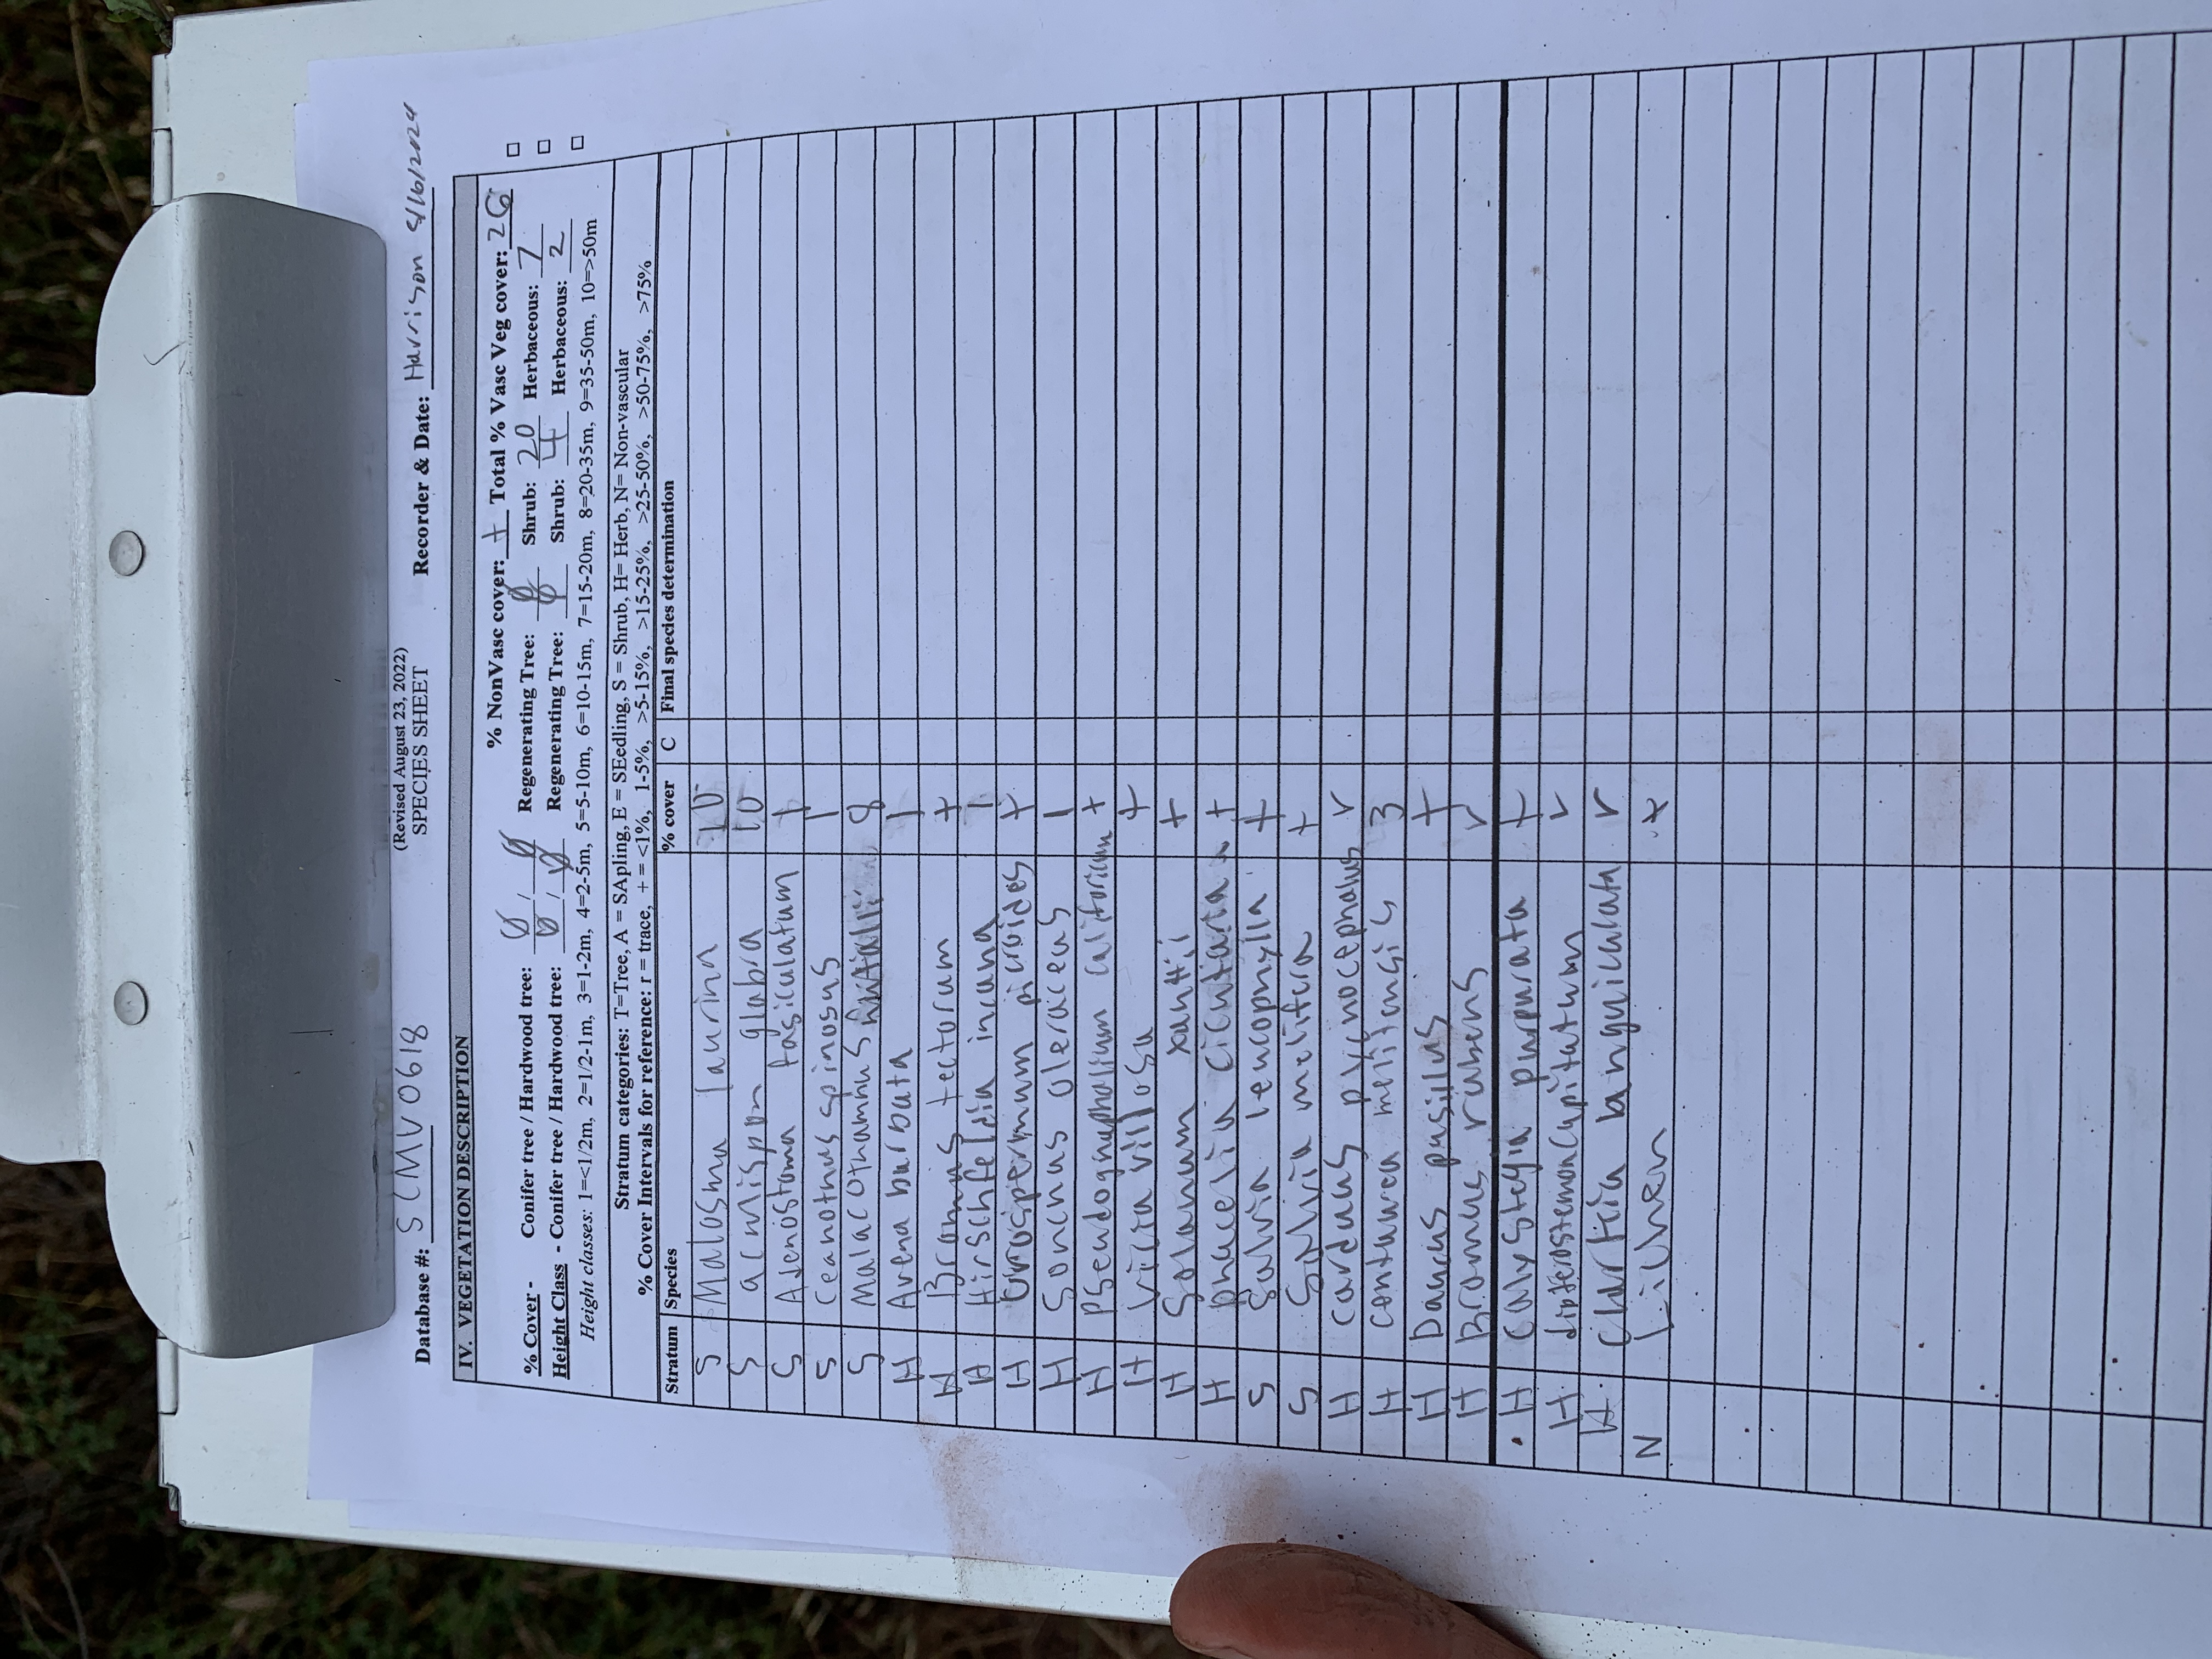 (Revised August 23, 2022)
SPECIES SHEET
Database #: SCMV0618 Recorder & Date: Harrison 5/16/2024
IV. VEGETATION DESCRIPTION
% NonVasc cover: + Total % Vasc Veg cover: 26
% Cover - Conifer tree / Hardwood tree: 0 / 0 Regenerating Tree: 0 Shrub: 20 Herbaceous: 7
Height Class - Conifer tree / Hardwood tree: 0 / 0 Regenerating Tree: 0 Shrub: 4 Herbaceous: 2
Height classes: 1=<1/2m, 2=1/2-1m, 3=1-2m, 4=2-5m, 5=5-10m, 6=10-15m, 7=15-20m, 8=20-35m, 9=35-50m, 10=>50m
Stratum categories: T=Tree, A = SApling, E = SEedling, S = Shrub, H= Herb, N= Non-vascular
% Cover Intervals for reference: r = trace, + = <1%, 1-5%, >5-15%, >15-25%, >25-50%, >50-75%, >75%
Stratum Species % cover C Final species determination
S Malosma laurina 10
S acmispon glabra 10
S Adenostoma fasiculatum +
S Ceanothus spinosus 1
S Malacothamnus nuttallii
H Avena barbata 1
H Bromus tectorum +
H Hirschfeldia incana 1
H Urospermum picroides +
H Sonchus oleraceus 1
H Pseudognaphalium califoricum +
H Vicia villosa +
H Solanum xantii +
H phacelia cicutaria +
S Salvia leucophylla +
S Salvia melifera +
H carduus pycnocephalus r
H centaurea melitensis 3
H Daucus pusillus +
H Bromus rubens r
H Calystegia purpurata +
H dipterostemon capitatum r
H Clarkia unguiculata r
N Lichen +